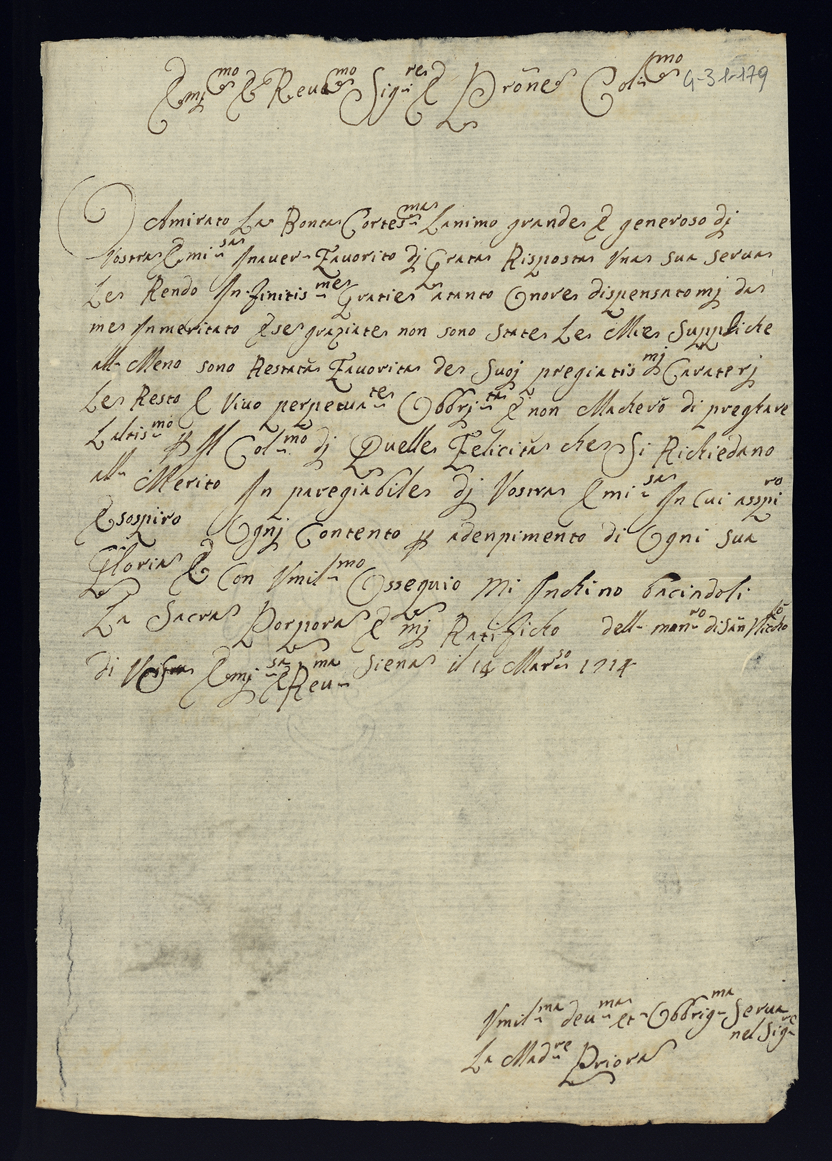 Emj.mo E Reu.mo Sig.re E Proñe Col.mo 4-31-179
Amirato La Bonta Cortes.ma Lanimo grande E generoso dj
Vostra Emi.sa Inauer Fauorito dj Grata Risposta Vna sua serua
Le Rendo Infinitis.me Gratie atanto Onore dispensatomj da
me Inmeritato E se graziate non sono State Le Mie Suppliche
all Meno sono Restata Fauorita de Suoj pregiatis.mj Caraterj
Le Resto E Viuo perpetua.te Obbrj.ta E non Macherò di preghare
Laltis.mo p Il Col.mo dj Quelle Felicità che Si Richiedano
all Merito In paregiabile dj Vostra Emi.sa In Cui asspiro
E sospiro Ognj Contento p adenpimento di Ogni sua
Gloria E Con Vmil.mo Ossequio Mi Inchino bacindoli
La Sacra Porpora E mj Ratificho dell mon.ro di San
di Emj.sa E Reu.ma Siena il 14 Mar.so 1714
Vmil.ma deu.ma et Obbrig.ma Serua
nel Sig.re
La Mad.re Priora